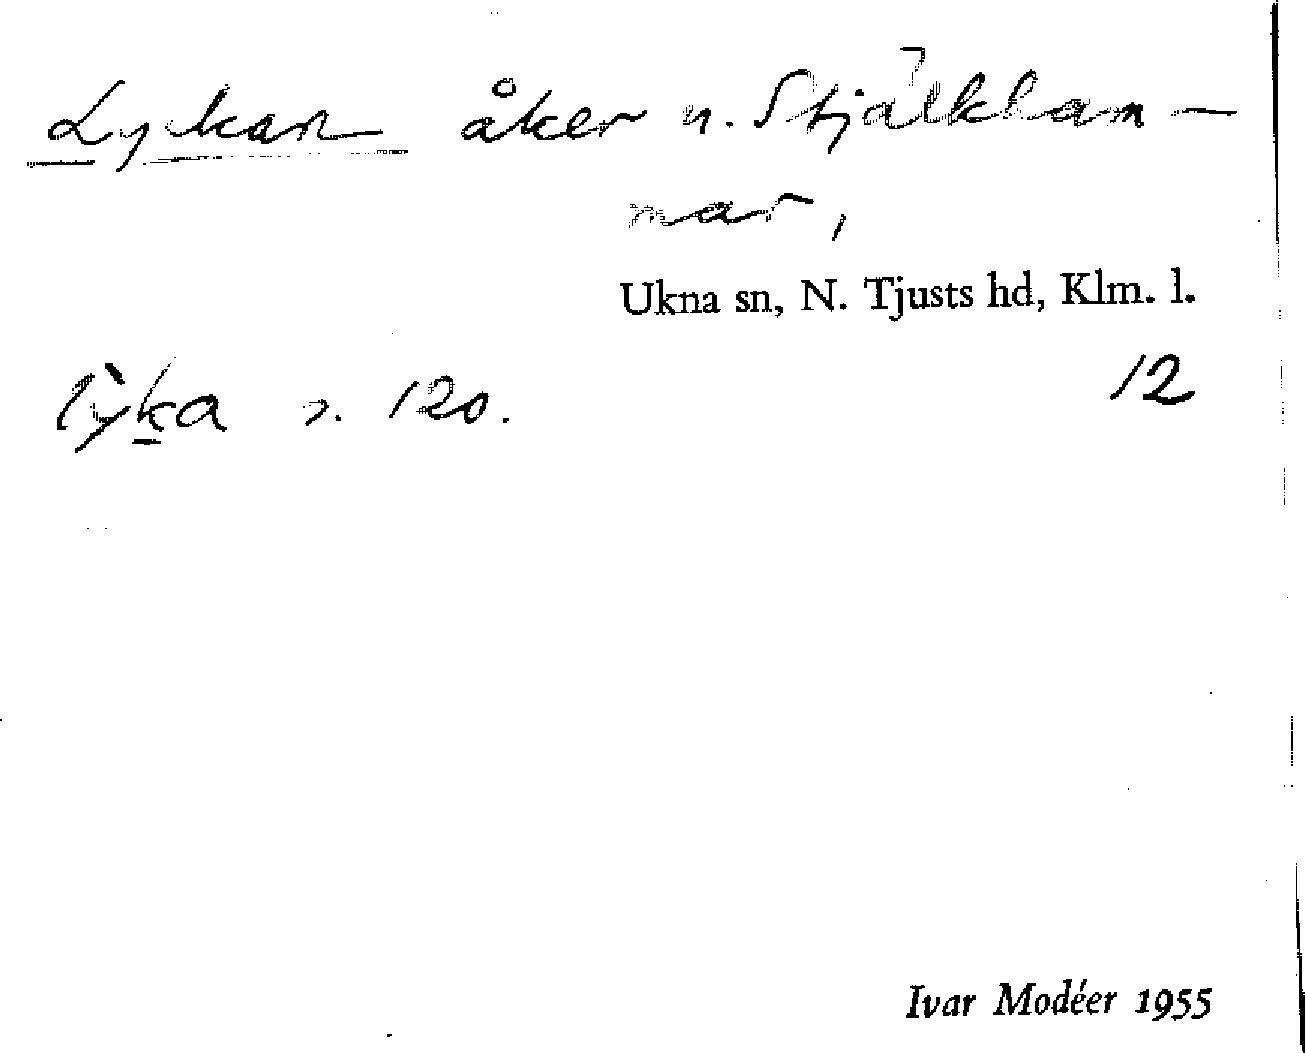 Lykan åker n. Stjälkham-
mar,
Ukna sn, N. Tjusts hd, Klm. l.
12
lỳka s. 120.
Ivar Modéer 1955